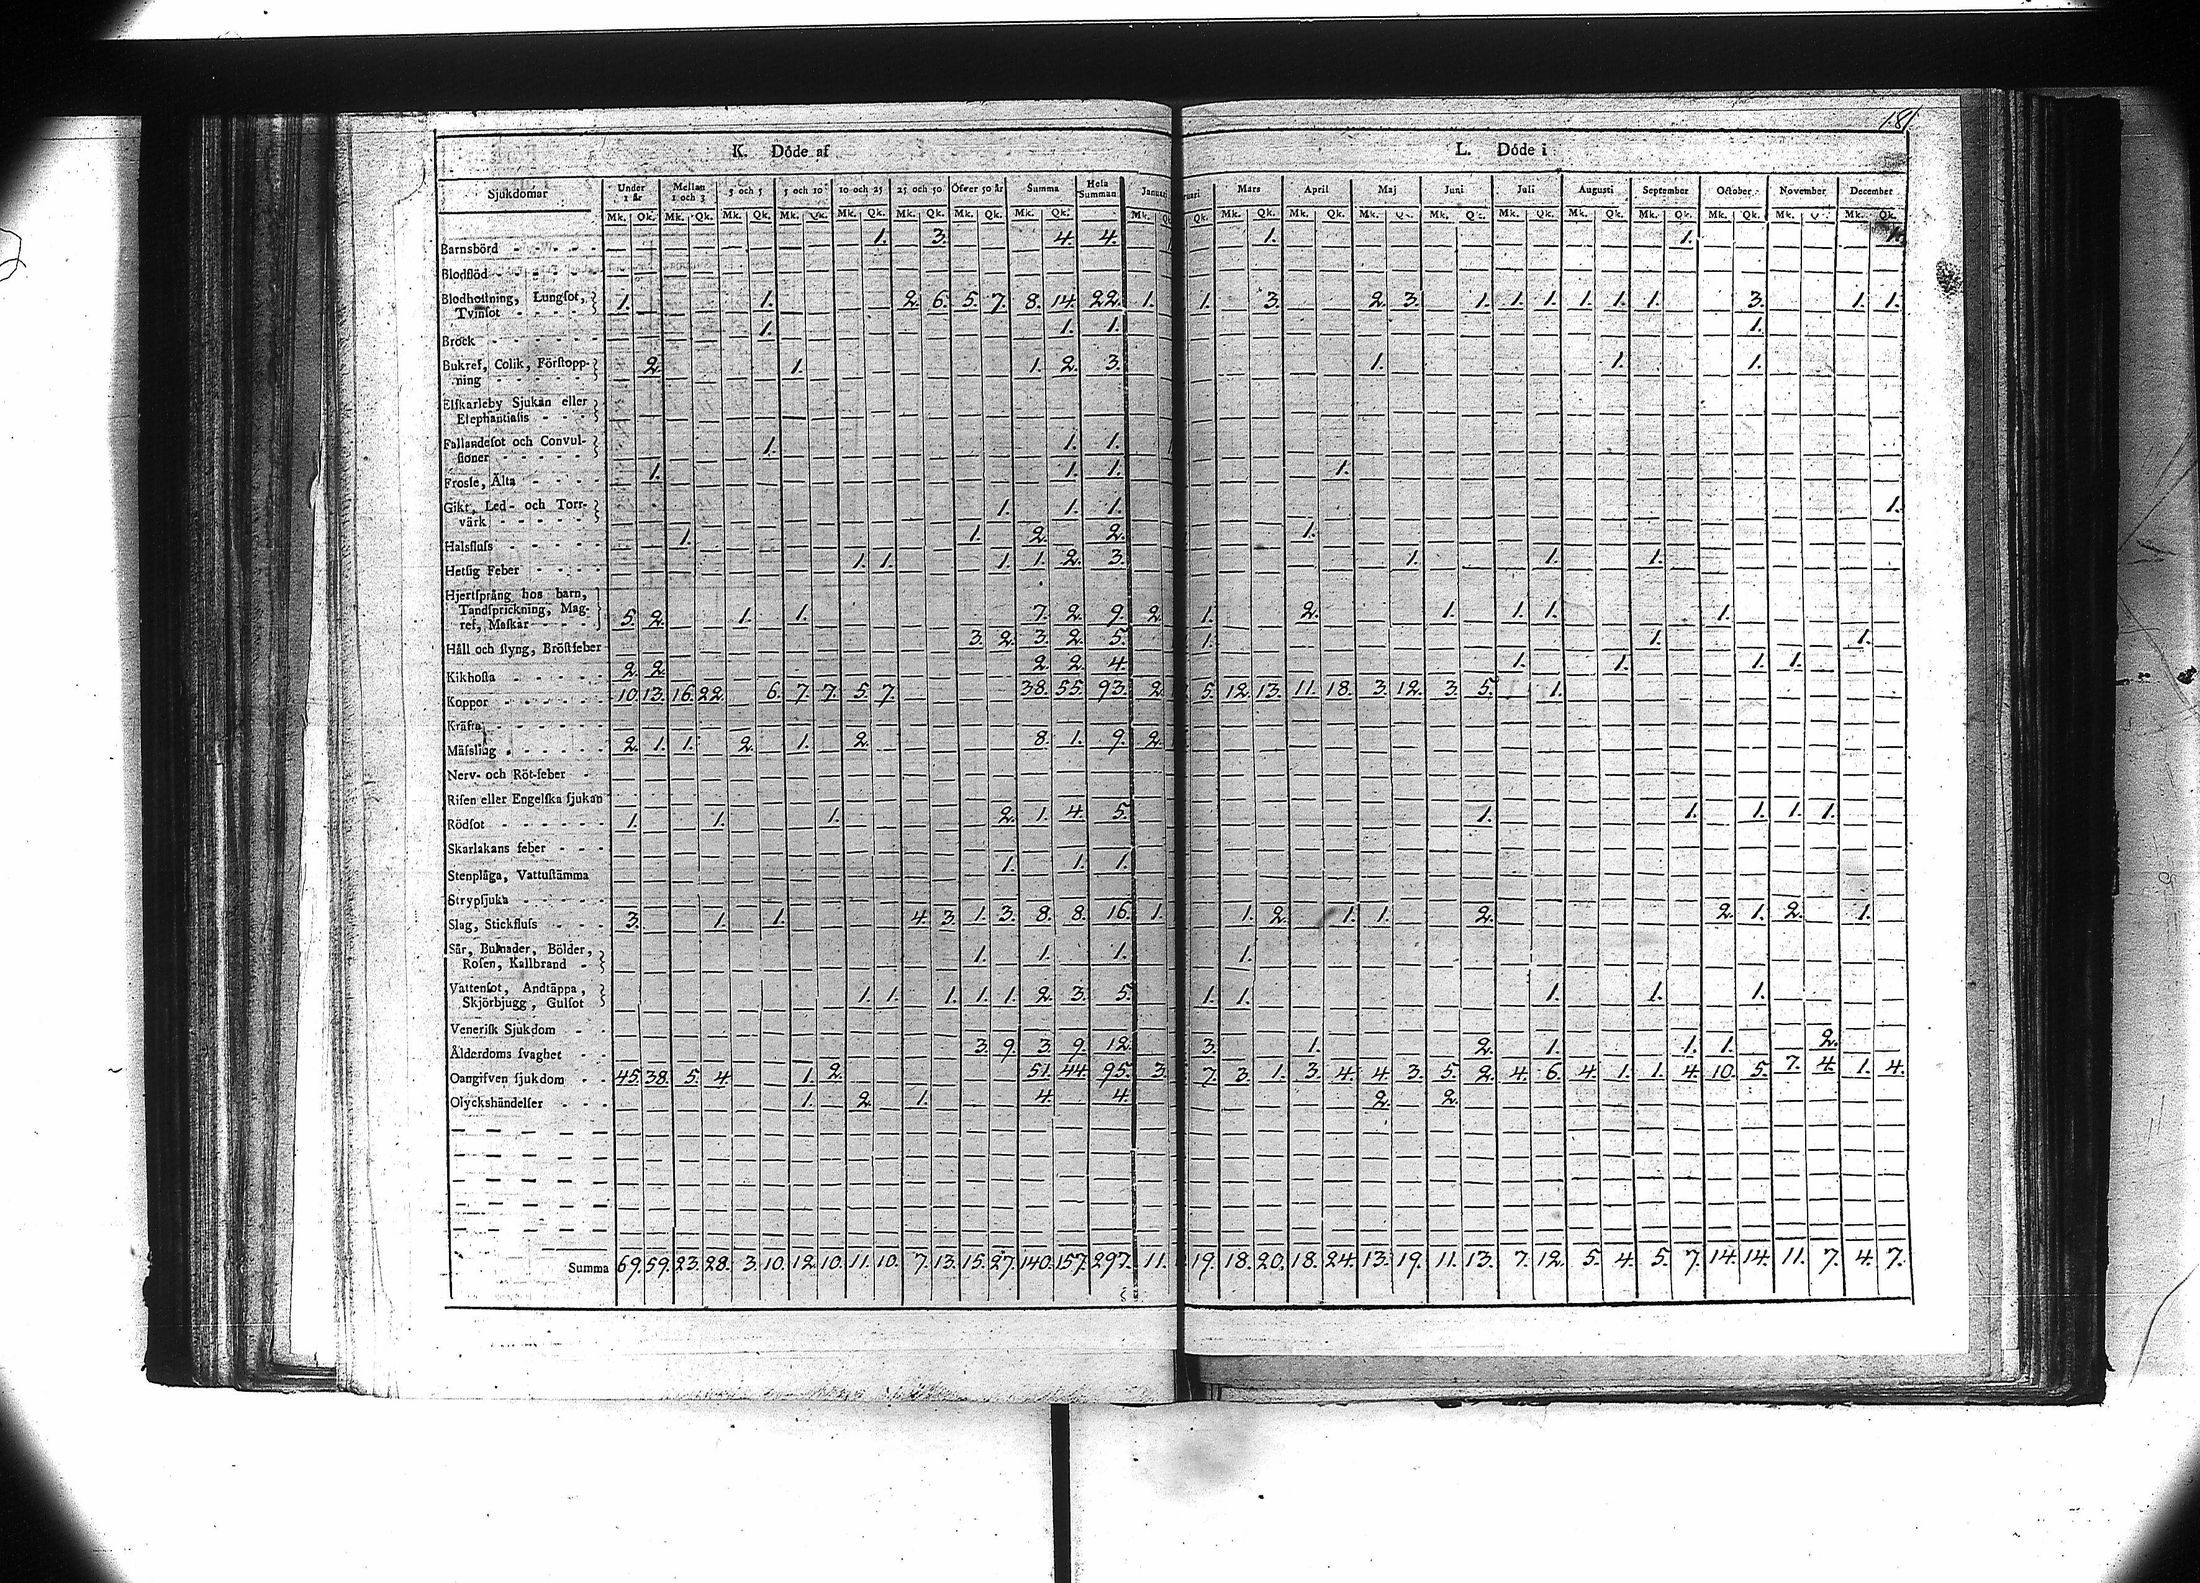 181
K. Döde af L. Döde i
Sjukdomar Under 1 år Mellan 1 och 3 3 och 5 5 och 10 10 och 25 25 och 50 Öfver 50 år Summa Hela Summan Januari Mars April Maj Juni Juli Augusti September October November December
Mk. Qk. Mk. Qk. Mk. Qk. Mk. Qk. Mk. Qk. Mk. Qk. Mk. Qk. Mk. Qk. Mk. Qk. Mk. Qk. Mk. Qk. Mk. Qk. Mk. Qk. Mk. Qk. Mk. Qk. Mk. Qk. Mk. Qk. Mk. Qk.
Barnsbörd 1. 3. 4. 4. 1. 1. 1.
Blodflöd
Blodhostning, Lungſot,
Tvinſot 1. 1. 2. 6. 5. 7. 8. 14. 22. 1. 1. 3. 2. 3. 1. 1. 1. 1. 1. 1. 3. 1. 1.
Bråck 1. 1. 1. 1.
Bukref, Colik, Förſtopp-
ning 2. 1. 1. 2. 3. 1. 1. 1.
Elſkarleby Sjukan eller
Elephantiaſis
Fallandeſot och Convul-
ſioner 1. 1. 1.
Frosſe, Älta 1. 1. 1. 1.
Gikt, Led- och Torr-
värk 1. 1. 1. 1.
Halsfluſs 1. 1. 2. 2. 1.
Hetſig Feber 1. 1. 1. 1. 2. 3. 1. 1. 1.
Hjertſprång hos barn,
Tandſprickning, Mag-
ref, Maſkar 5. 2. 1. 1. 7. 2. 9. 2. 1. 2. 1. 1. 1. 1.
Håll och ſtyng, Bröſtfeber 3. 2. 3. 2. 5. 1. 1. 1.
Kikhoſta 2. 2. 2. 2. 4. 1. 1. 1. 1.
Koppor 10. 13. 16. 22. 6. 7. 7. 5. 7. 38. 55. 93. 2. 5. 12. 13. 11. 18. 3. 12. 3. 5. 1.
Kräfta
Mäſsling 2. 1. 1. 2. 1. 2. 8. 1. 9. 2.
Nerv- och Röt-feber
Riſen eller Engelſka ſjukan
Rödſot 1. 1. 1. 2. 1. 4. 5. 1. 1. 1. 1. 1.
Skarlakans feber
Stenplåga, Vattuſtämma 1. 1. 1.
Strypſjuka
Slag, Stickfluſs 3. 1. 1. 4. 3. 1. 3. 8. 8. 16. 1. 1. 2. 1. 1. 2. 2. 1. 2. 1.
Sår, Bulnader, Bölder,
Roſen, Kallbrand 1. 1. 1. 1.
Vattenſot, Andtäppa,
Skjörbjugg, Gulſot 1. 1. 1. 1. 1. 2. 3. 5. 1. 1. 1. 1. 1.
Veneriſk Sjukdom
Ålderdoms ſvaghet 3. 9. 3. 9. 12. 3. 1. 2. 1. 1. 1. 2.
Oangifven ſjukdom 45. 38. 5. 4. 1. 2. 51. 44. 95. 3. 7. 3. 1. 3. 4. 4. 3. 5. 2. 4. 6. 4. 1. 1. 4. 10. 5. 7. 4. 1. 4.
Olyckshändelſer 1. 2. 1. 4. 4. 2. 2.
Summa 69. 59. 23. 28. 3. 10. 12. 10. 11. 10. 7. 13. 15. 27. 140. 157. 297. 11. 19. 18. 20. 18. 24. 13. 19. 11. 13. 7. 12. 5. 4. 5. 7. 14. 14. 11. 7. 4. 7.